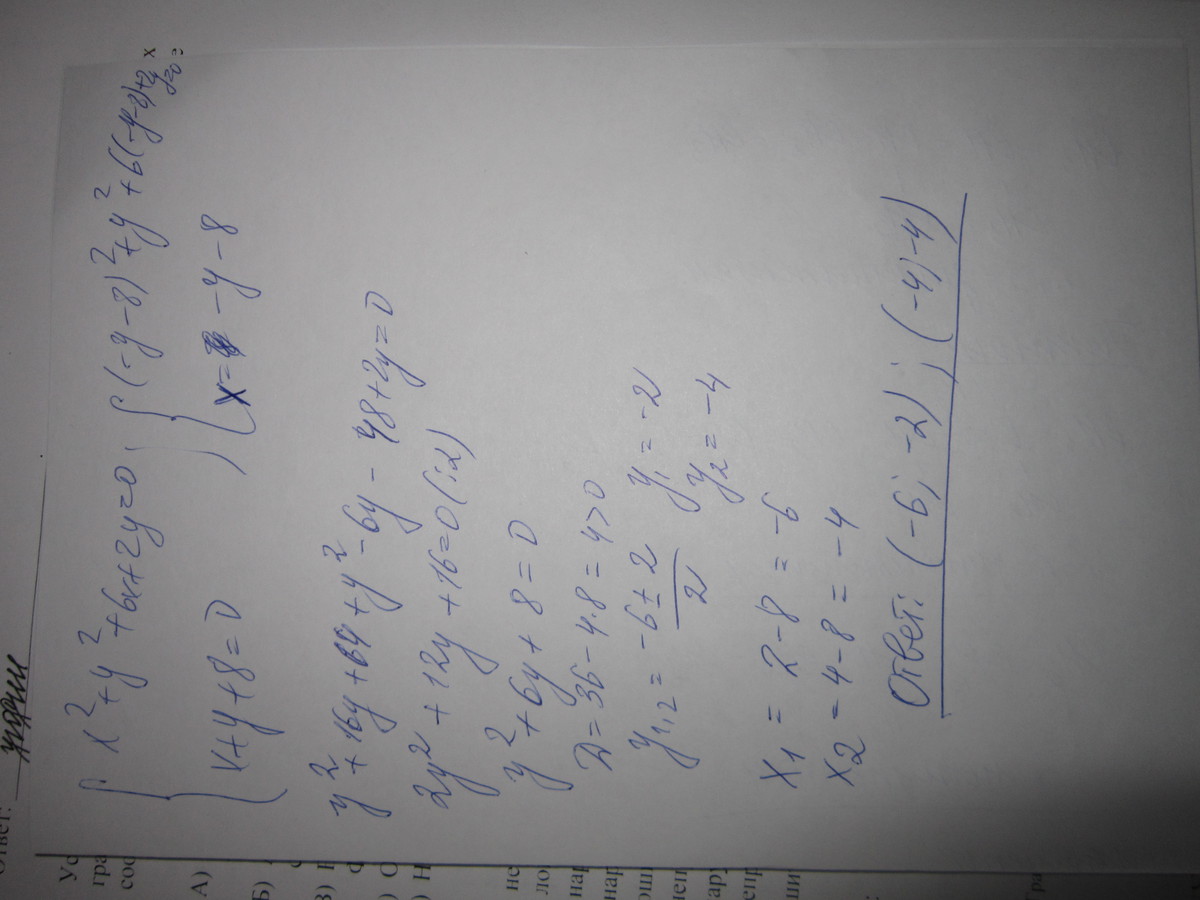 x² + y² + 6x + 2y = 0, { (-y-8)² + y² + 6(-y-8) + 2y = 0
x + y + 8 = 0 , x = -y - 8
y² + 16y + 64 + y² - 6y - 48 + 2y = 0
2y² + 12y + 16 = 0 (:2)
y² + 6y + 8 = 0
D = 36 - 4·8 = 4 > 0
y₁,₂ = (-6 ± 2)/2 y₁ = -2
y₂ = -4
x₁ = 2 - 8 = -6
x₂ = 4 - 8 = -4
Ответ: (-6; -2); (-4; -4)
А)
Б)